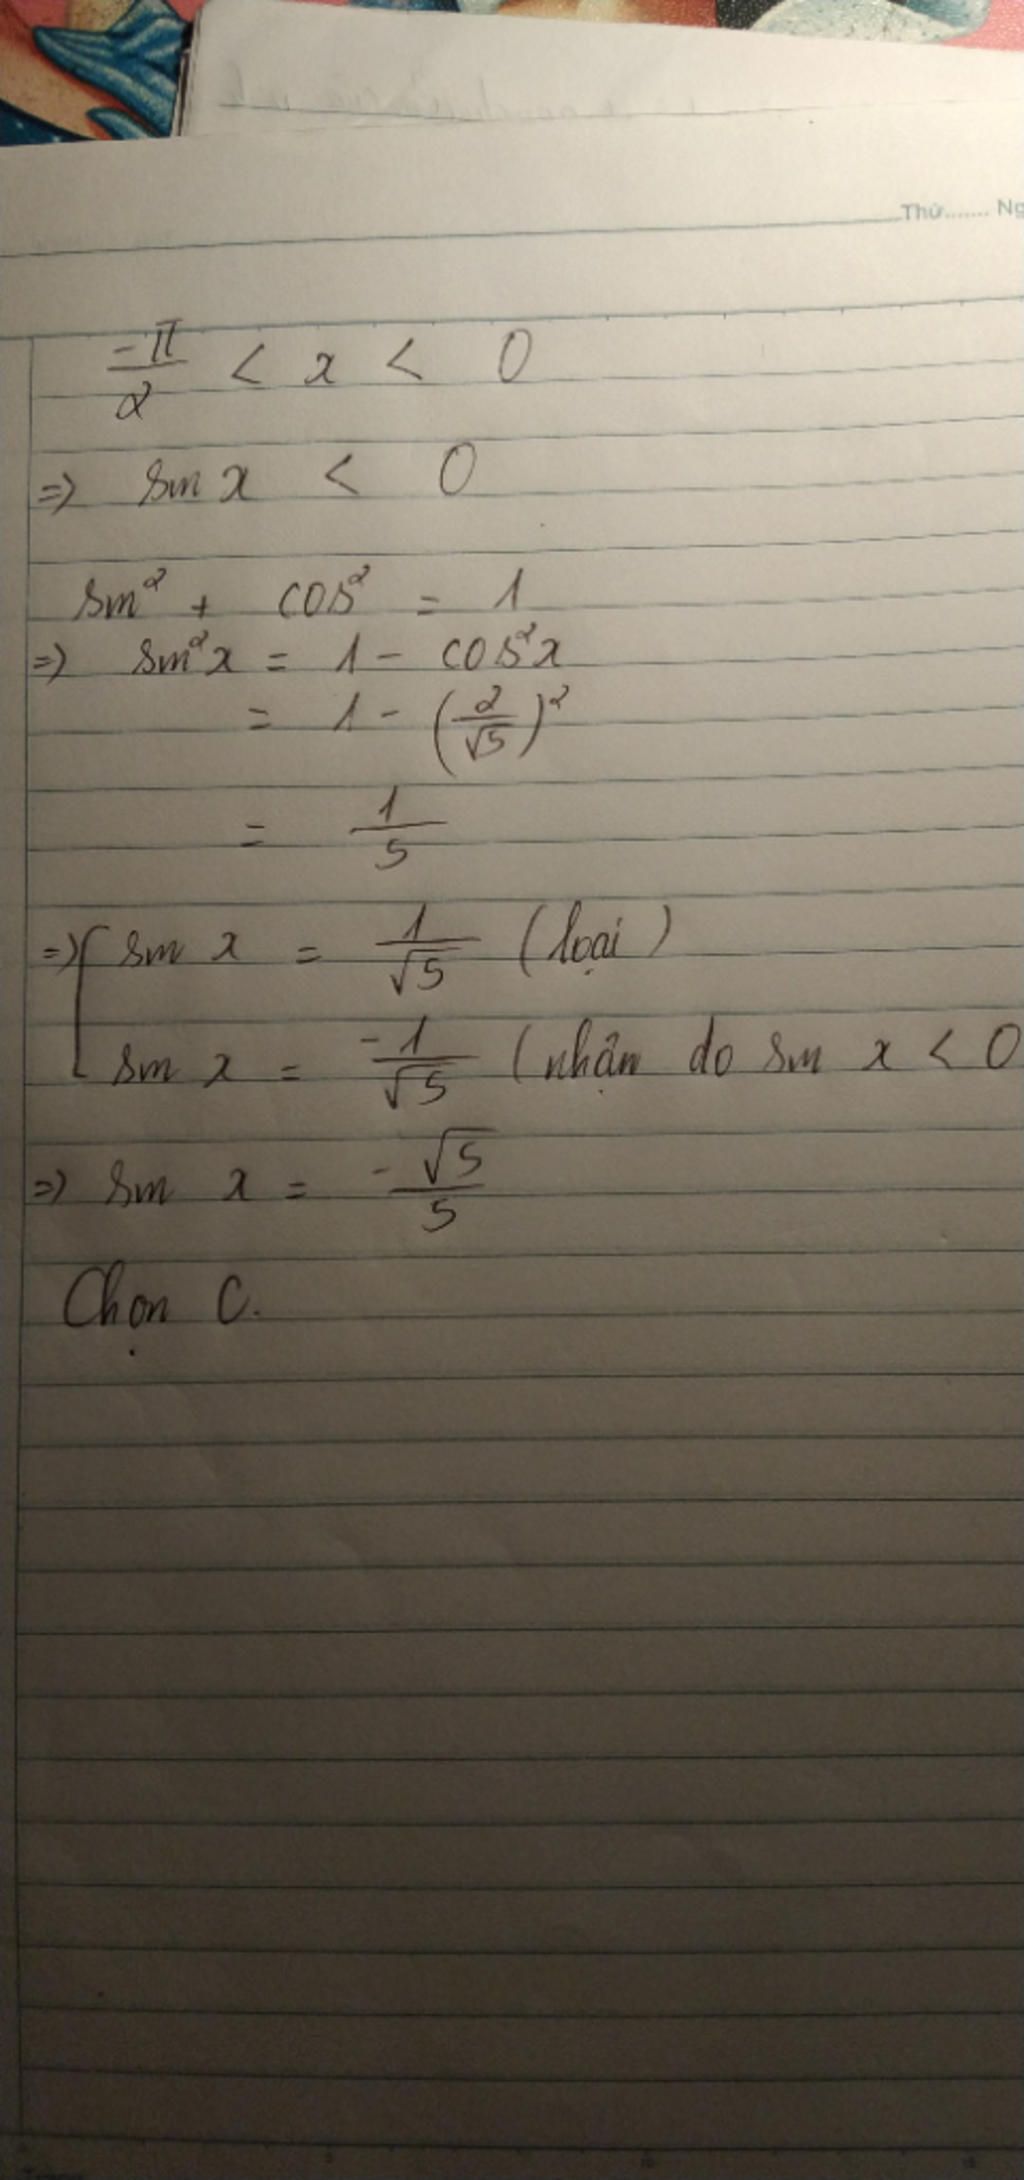 Thứ....... Ng
-π/2 < x < 0
=> sin x < 0
sin² + cos² = 1
=> sin²x = 1 - cos²x
= 1 - (2/√5)²
= 1/5
=> [ sin x = 1/√5 (loại)
sin x = -1/√5 (nhận do sin x < 0
=> sin x = -√5/5
Chọn C.